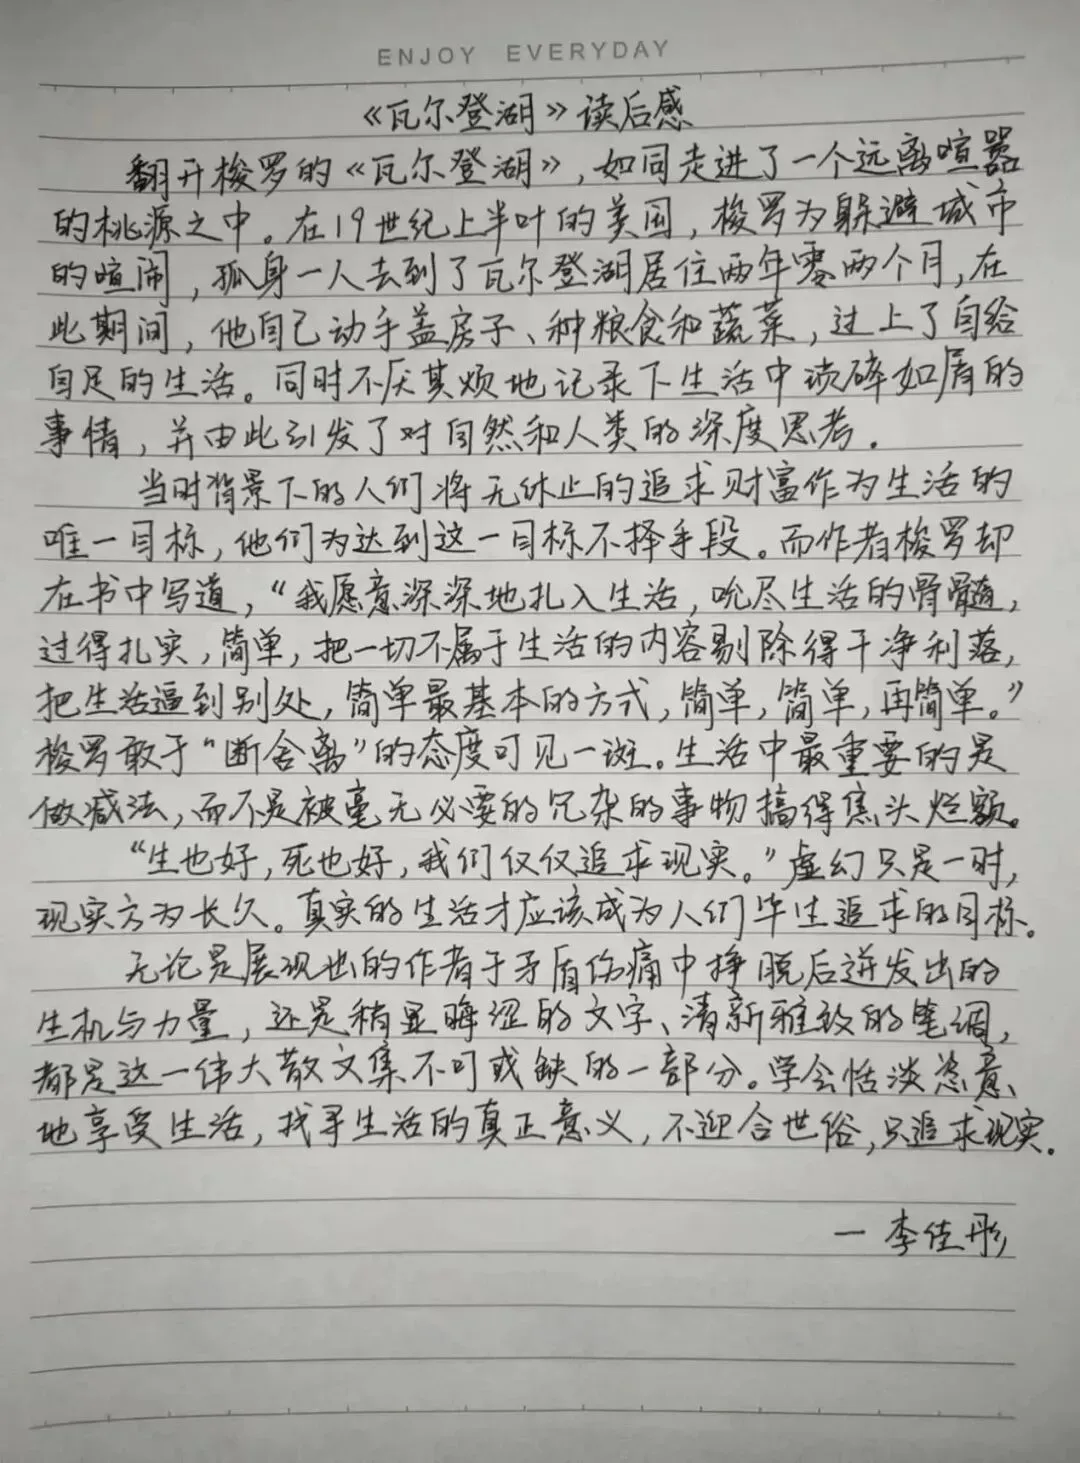 ENJOY EVERYDAY
《瓦尔登湖》读后感
翻开梭罗的《瓦尔登湖》,如同走进了一个远离喧嚣
的桃源之中。在19世纪上半叶的美国,梭罗为躲避城市
的喧闹,孤身一人去到了瓦尔登湖居住两年零两个月,在
此期间,他自己动手盖房子、种粮食和蔬菜,过上了自给
自足的生活。同时不厌其烦地记录下生活中琐碎如屑的
事情,并由此引发了对自然和人类的深度思考。
当时背景下的人们将无休止的追求财富作为生活的
唯一目标,他们为达到这一目标不择手段。而作者梭罗却
在书中写道,“我愿意深深地扎入生活,吮尽生活的骨髓,
过得扎实,简单,把一切不属于生活的内容剔除得干净利落,
把生活逼到别处,简单最基本的方式,简单,简单,再简单。”
梭罗敢于“断舍离”的态度可见一斑。生活中最重要的是
做减法,而不是被毫无必要的冗杂的事物搞得焦头烂额。
“生也好,死也好,我们仅仅追求现实。”虚幻只是一时,
现实方为长久。真实的生活才应该成为人们毕生追求的目标。
无论是展现出的作者于矛盾伤痛中挣脱后迸发出的
生机与力量,还是稍显晦涩的文字、清新雅致的笔调,
都是这一伟大散文集不可或缺的一部分。学会恬淡恣意
地享受生活,找寻生活的真正意义,不迎合世俗,只追求现实。
一 李佳彤